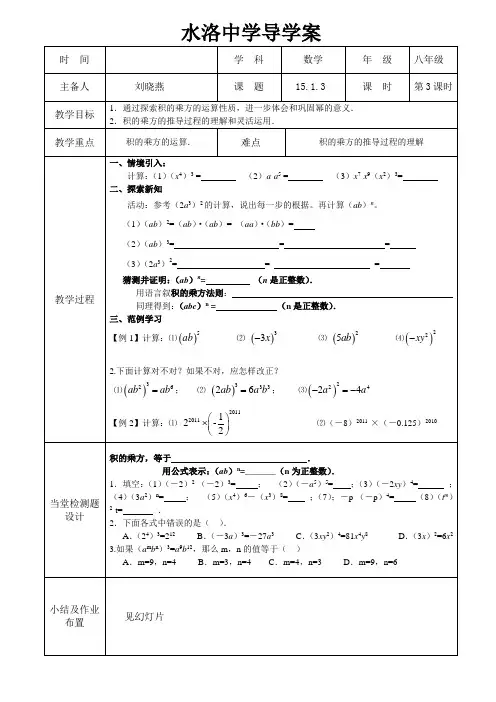 水洛中学导学案
时 间 学 科 数学 年 级 八年级
主备人 刘晓燕 课 题 15.1.3 课 时 第3课时
教学目标
1．通过探索积的乘方的运算性质，进一步体会和巩固幂的意义．
2．积的乘方的推导过程的理解和灵活运用．
教学重点 积的乘方的运算． 难点 积的乘方的推导过程的理解
教学过程
一、情境引入：
计算：（1）（x⁴）³ = （2）a·a⁵ = （3）x⁷·x⁹（x²）³=
二、探索新知
活动：参考（2a³）²的计算，说出每一步的根据。再计算（ab）ⁿ。
（1）（ab）²=（ab）·（ab）=（aa）·（bb）=
（2）（ab）³= = =
（3）（2a³）²= = =
猜测并证明：（ab）ⁿ= （n是正整数）．
用语言叙积的乘方法则：
同理得到：（abc）ⁿ = （n是正整数）．
三、范例学习
【例1】计算：⑴(ab)⁵ ⑵ (−3x)³ ⑶ (5ab)² ⑷(−xy²)²
2.下面计算对不对？如果不对，应怎样改正？
⑴(ab²)³=ab⁶； ⑵ (2ab)³=6a³b³； ⑶(−2a²)²=−4a⁴
【例2】计算：⑴ 2²⁰¹¹×(-1/2)²⁰¹¹ ⑵（－8）²⁰¹¹ ×（－0.125）²⁰¹⁰
当堂检测题
设计
积的乘方，等于 ．
用公式表示：（ab）ⁿ=_______（n为正整数）．
1．填空：（1）（－2）²·（－2）³= ； （2）（－a⁵）⁵= ；（3）（－2xy）⁴= ；
（4）（3a²）ⁿ= ； （5）（x⁴）⁶－（x³）⁸= ；（7）；－p·（－p）⁴= （8）（tᵐ）
²·t= ．
2．下面各式中错误的是（ ）．
A．（2⁴）³=2¹² B．（－3a）³=－27a³ C．（3xy²）⁴=81x⁴y⁸ D．（3x）²=6x²
3.如果（aᵐbⁿ）³=a⁹b¹²，那么m，n的值等于（ ）
A．m=9，n=4 B．m=3，n=4 C．m=4，n=3 D．m=9，n=6
小结及作业
布置
见幻灯片